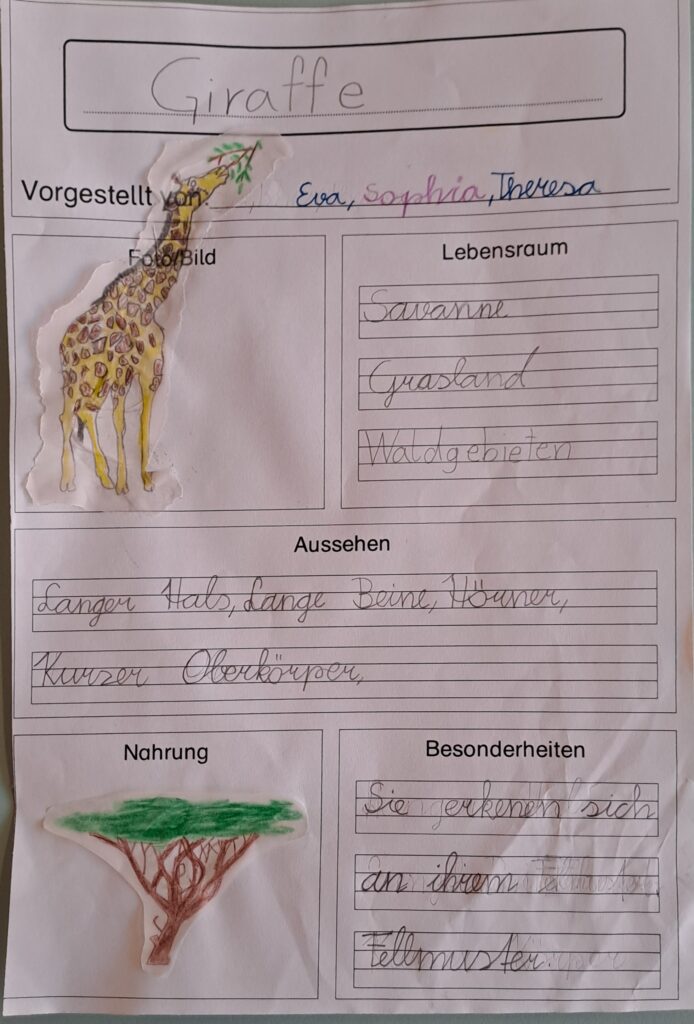 Giraffe
Vorgestellt von: Eva, Sophia, Theresa
Foto/Bild
Lebensraum
Savanne
Grasland
Waldgebieten
Aussehen
Langer Hals, Lange Beine, Hörner,
Kurzer Oberkörper,
Nahrung
Besonderheiten
Sie erkenen sich
an ihrem
Fellmuster.